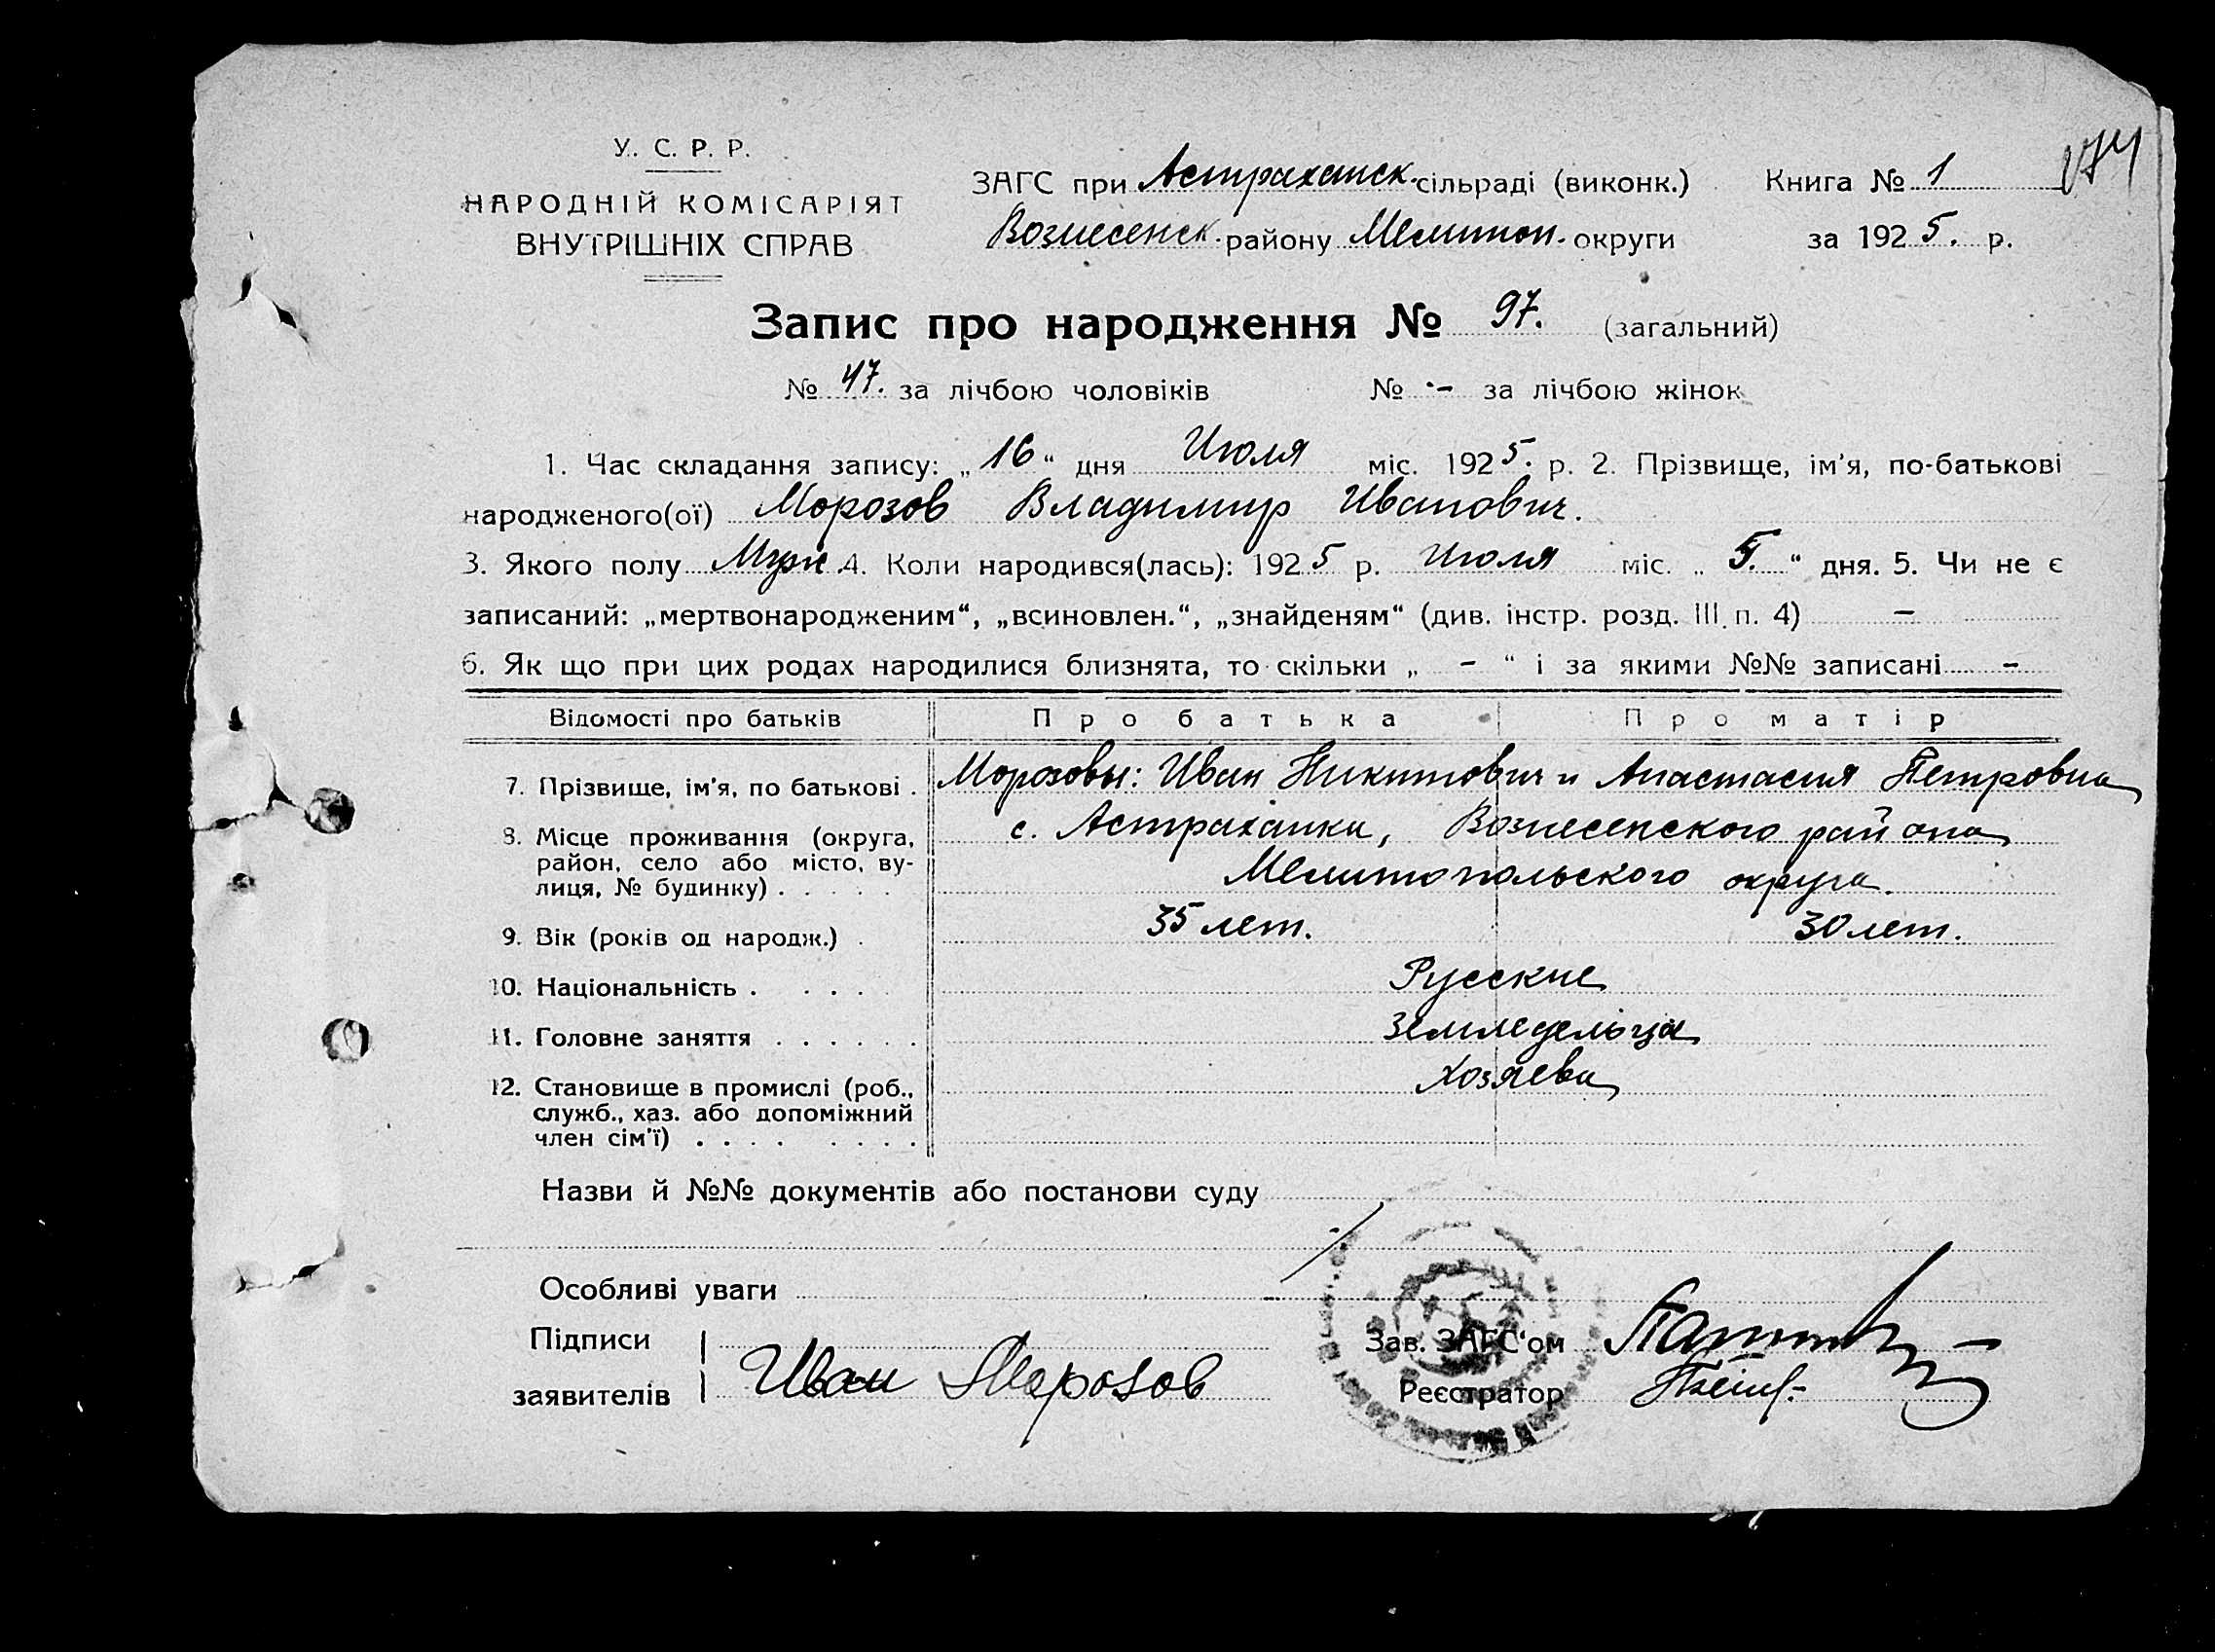 У. С. Р. Р.
НАРОДНІЙ КОМІСАРІЯТ
ВНУТРІШНІХ СПРАВ
ЗАГС при Астраханск. сільраді (виконк.) Книга № 1 174
Вознесенск. району Мелитоп. округи за 1925. р.
Запис про народження № 97. (загальний)
№ 47. за лічбою чоловіків № - за лічбою жінок
1. Час складання запису: „16“ дня Июля міс. 1925. р. 2. Прізвище, ім'я, по-батькові
народженого(ої) Морозов Владимир Иванович.
3. Якого полу Муж. 4. Коли народився(лась): 1925 р. Июля міс. „5.“ дня. 5. Чи не є
записаний: „мертвонародженим“, „всиновлен.“, „знайденям“ (див. інстр. розд. III п. 4) -
6. Як що при цих родах народилися близнята, то скільки „ - “ і за якими №№ записані -
Відомості про батьків Про батька Про матір
7. Прізвище, ім'я, по батькові . Морозовы: Иван Никитович и Анастасия Петровна
8. Місце проживання (округа, с. Астраханки, Вознесенского района
район, село або місто, ву-
лиця, № будинку) . . . . . Мелитопольского округа.
9. Вік (років од народж.) . 35 лет. 30 лет.
10. Національність . . . . Русские
11. Головне заняття . . . . . . Земледельца
12. Становище в промислі (роб., Хозяева
служб., хаз. або допоміжний
член сім'ї) . . . . . . . .
Назви й №№ документів або постанови суду
Особливі уваги
Підписи
заявителів Иван Морозов
Зав. ЗАГС'ом
Реєстратор